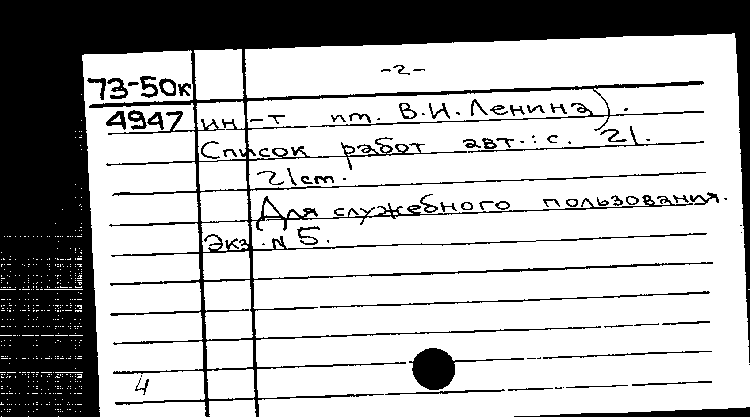 -2-
73-50к
4947 ин-т им. В.И.Ленина).
Список работ авт.: с. 21.
21cm.
Для служебного пользования.
Экз. N 5.
4